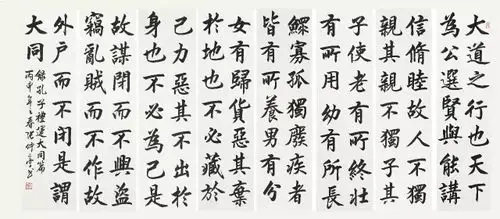 大道之行也天下
為公選賢與能講
信脩睦故人不獨
親其親不獨子其
子使老有所終壯
有所用幼有所長
鰥寡孤獨廢疾者
皆有所養男有分
女有歸貨惡其棄
於地也不必藏於
己力惡其不出於
身也不必為己是
故謀閉而不興盜
竊亂賊而不作故
外戶而不閉是謂
大同
錄孔子禮運大同篇
丙申年之春